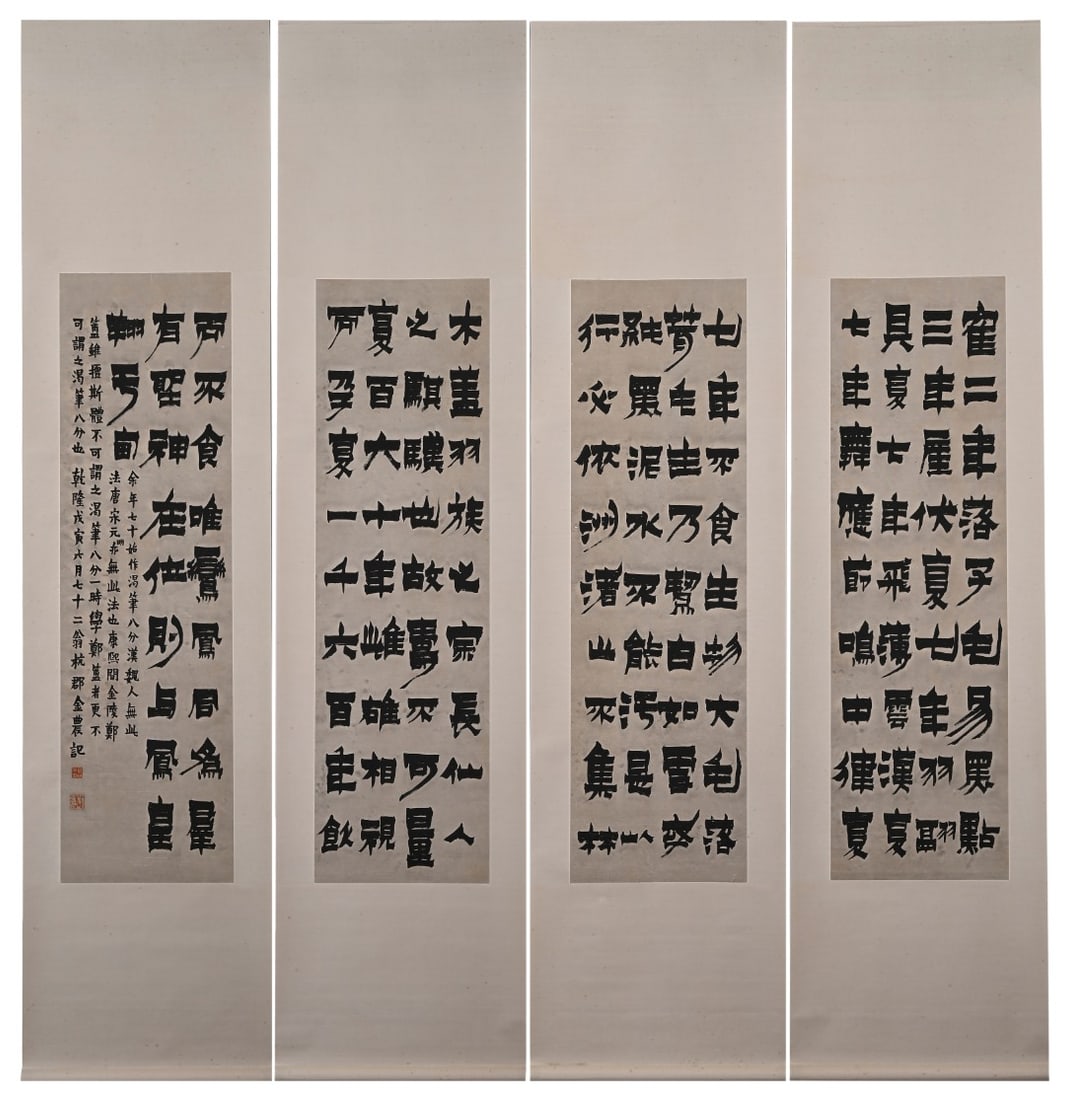 寉二年落子毛易黑點
三年產伏复七年羽翮
具复七年飛薄雲漢复
七年舞應節鳴中律复
七年不食生物大毛落
茸毛生乃絜白如雪
純黑泥水不能污是以
行必依洲渚止不集林
木蓋羽族之宗長仙人
之騏驥也故壽不可量
复百六十年雌雄相視
而孕复一千六百年飲
而不食唯鸞鳳同為羣
有聖神在位則與鳳皇
翔亏甸
余年七十始作渴筆八分漢魏人無此
法唐宋元明亦無此法也康熙間金陵鄭
簠雖擅斯體不可謂之渴筆八分一時學鄭簠者更不
可謂之渴筆八分也 乾隆戊寅六月七十二翁杭郡金農記